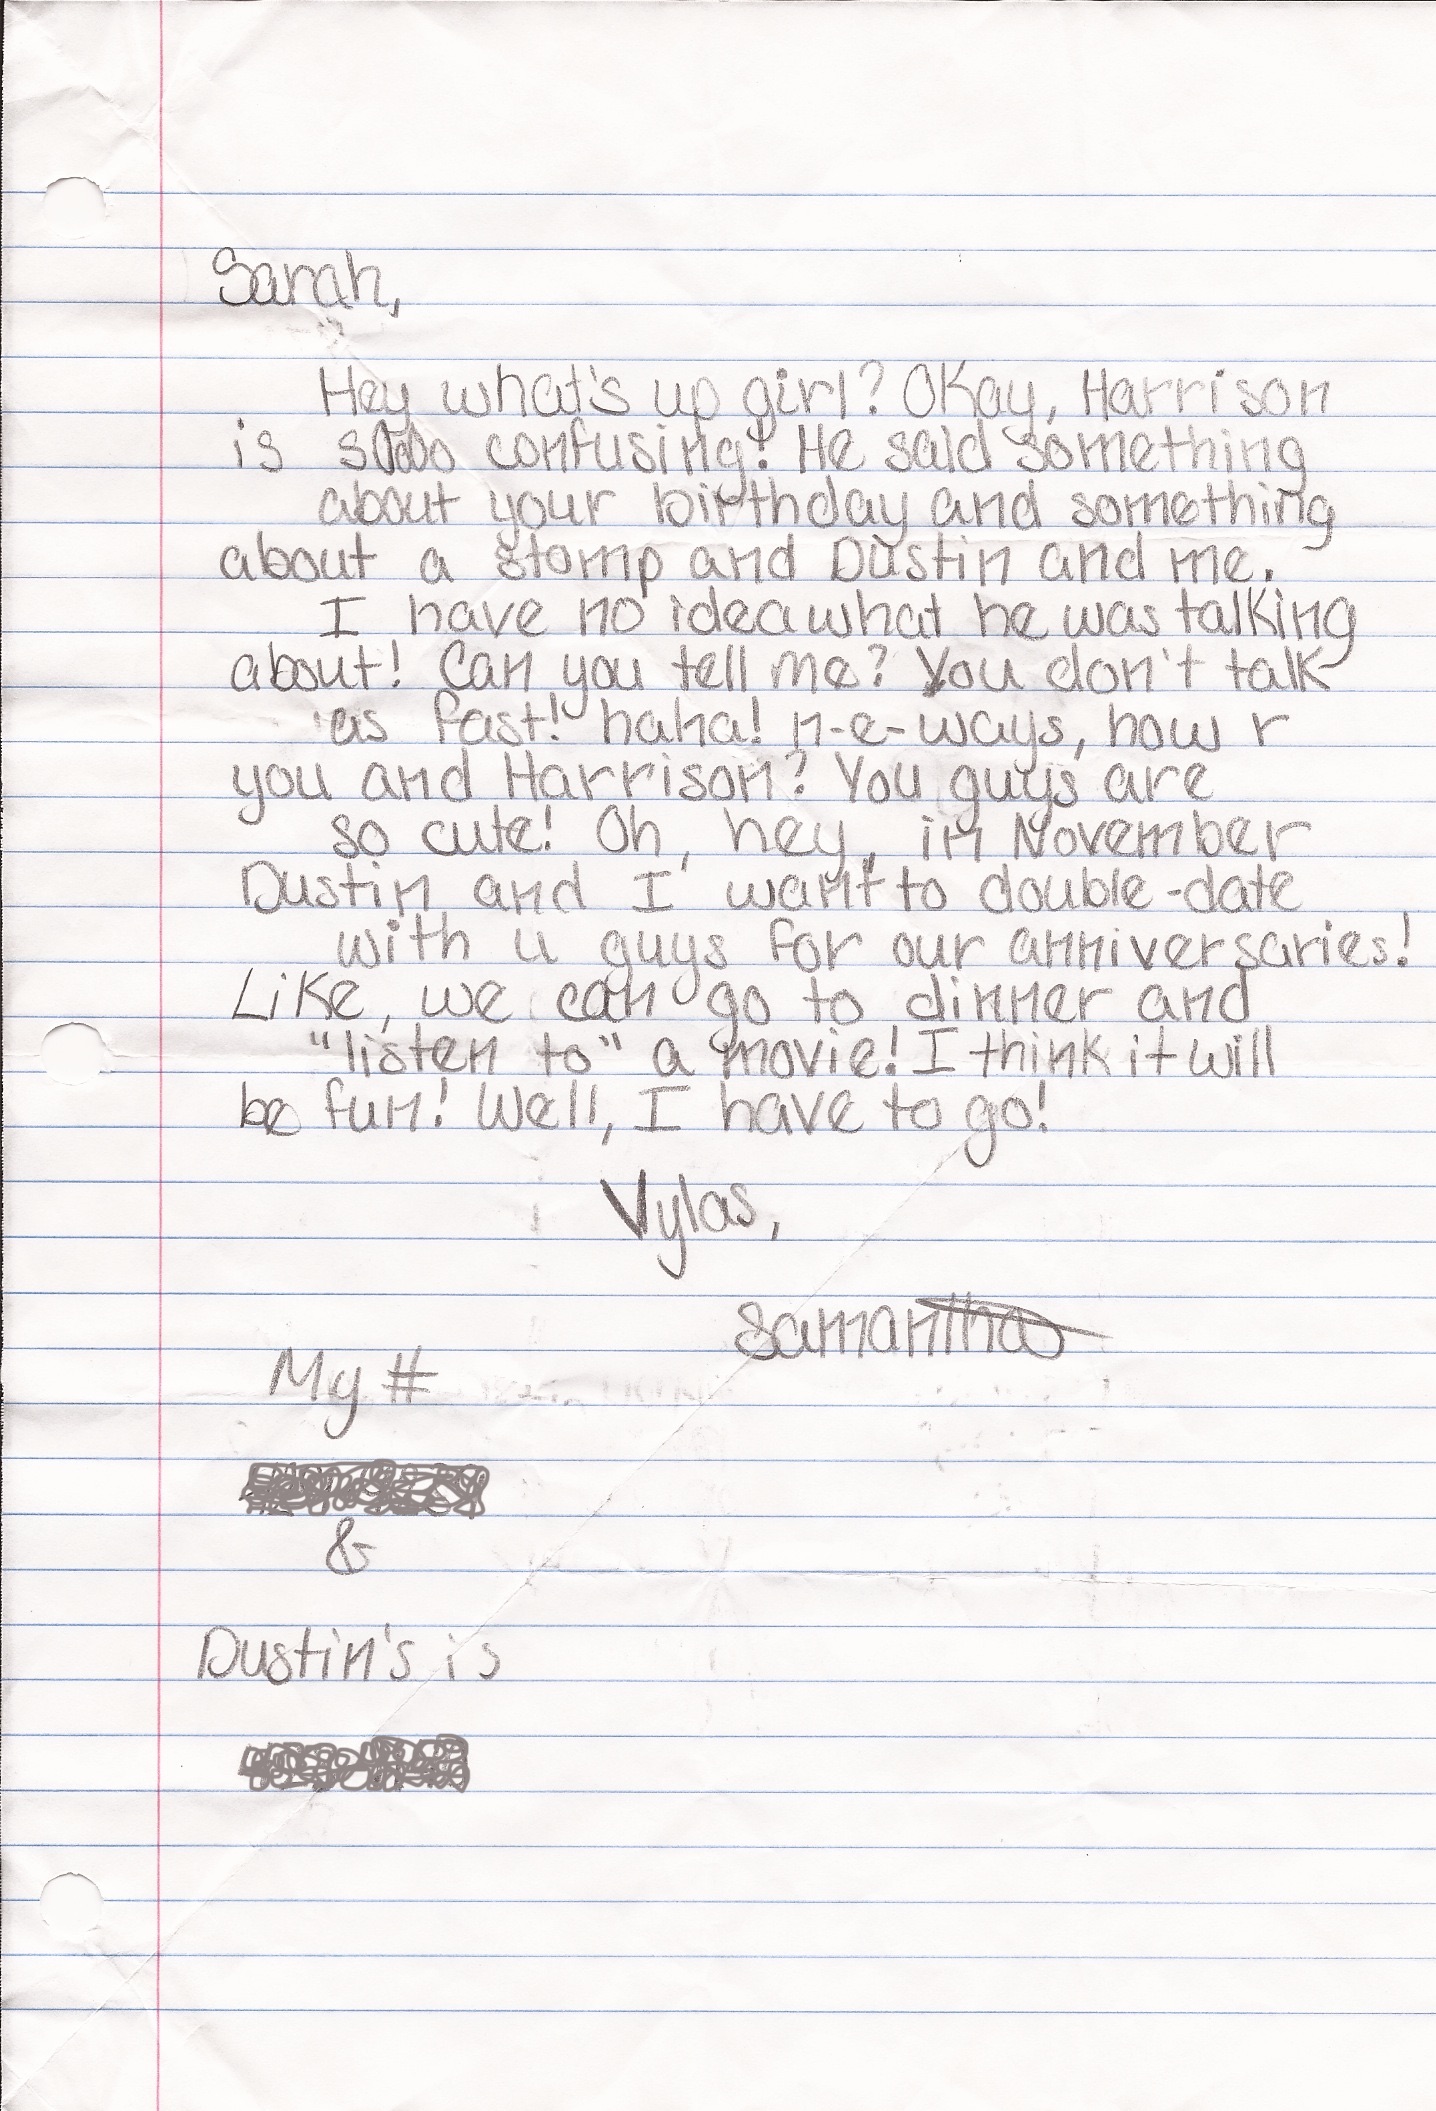 Sarah,
Hey what's up girl? Okay, Harrison
is soooo confusing! He said something
about your birthday and something
about a stomp and Dustin and me.
I have no idea what he was talking
about! Can you tell me? You don't talk
as fast! haha! n-e-ways, how r
you and Harrison? You guys are
so cute! Oh, hey, in November
Dustin and I want to double-date
with u guys for our anniversaries!
Like, we can go to dinner and
"listen to" a movie! I think it will
be fun! Well, I have to go!
Vylas,
Samantha
My #
&
Dustin's is